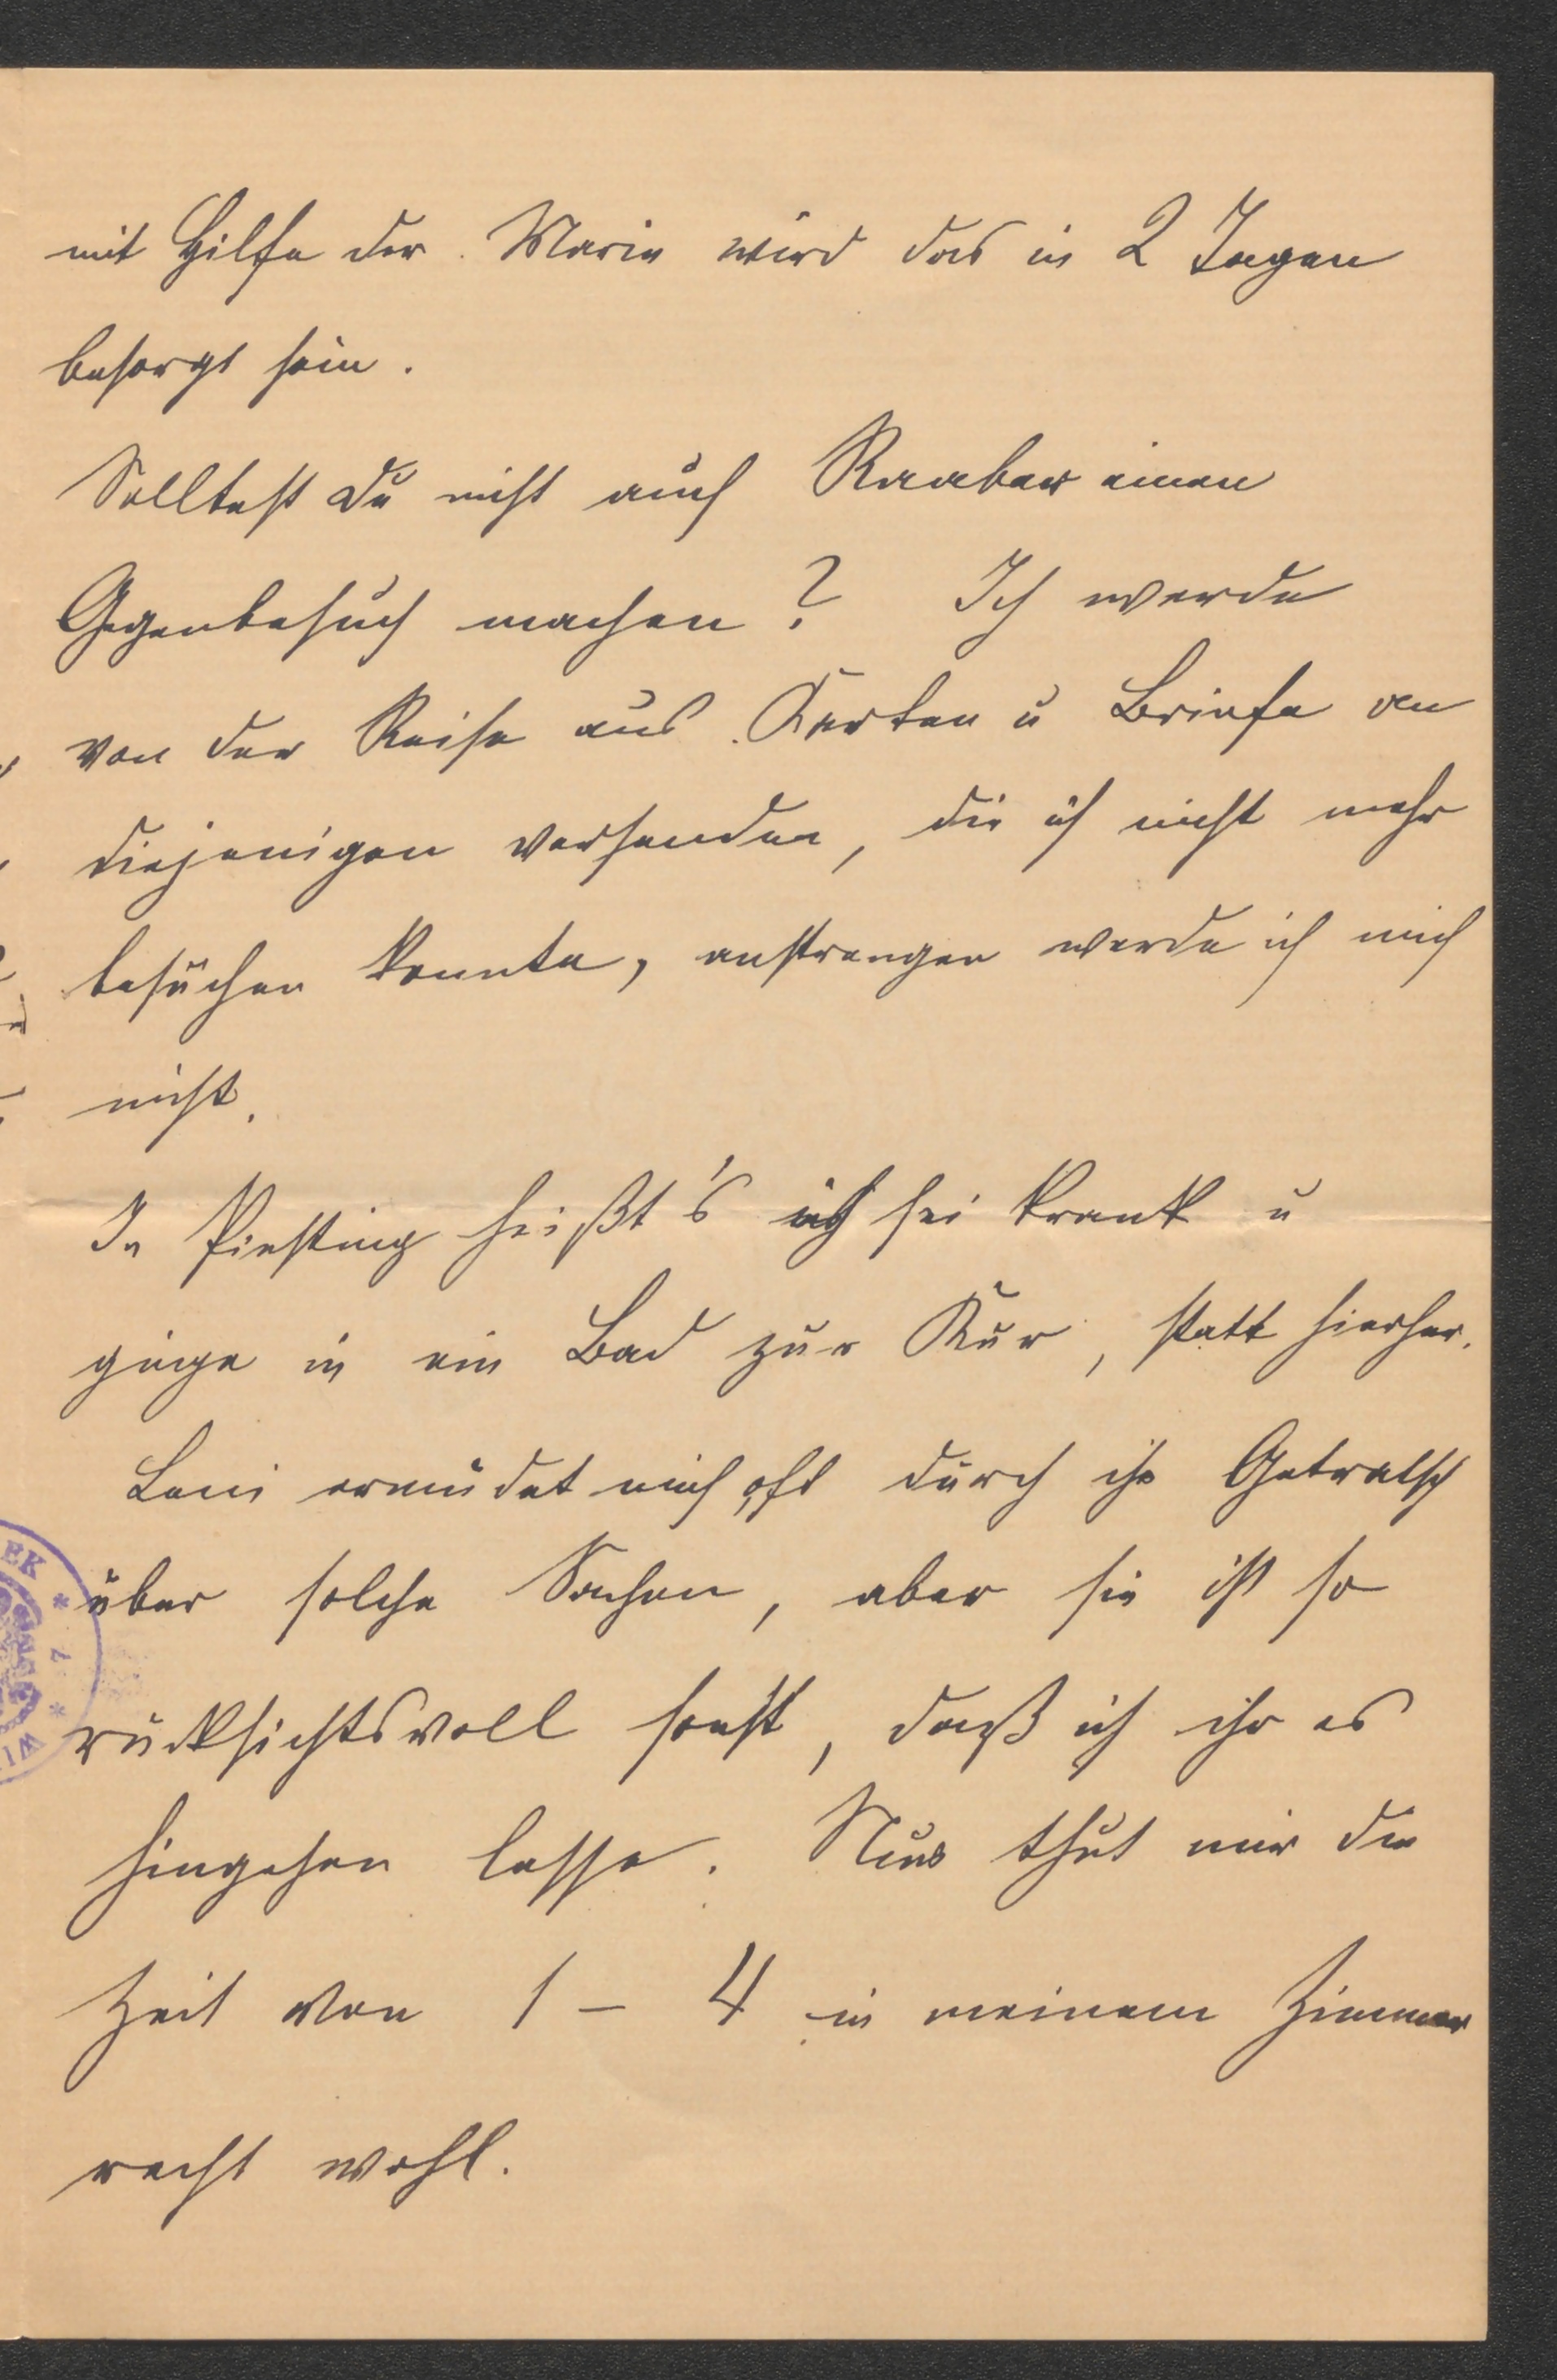 mit Hilfe der Marie wird das in 2 Tagen
besorgt sein.
Solltest Du nicht auch Raaber einen
Gegenbesuch machen? Ich werde
von der Reise aus Karten u Briefe an
diejenigen versenden, die ich nicht mehr
besuchen konnte, anstrengen werde ich mich
nicht.
In Piesting heißt's ich sei krank u
ginge in ein Bad zur Kur, statt hierher.
Leni ermüdet mich oft durch ihr Getratsch
über solche Sachen, aber sie ist so
rücksichtsvoll sonst, daß ich ihr es
hingehen lasse. Nur thut mir die
Zeit von 1 – 4 in meinem Zimmer
recht wohl.
EK * 7 * WI